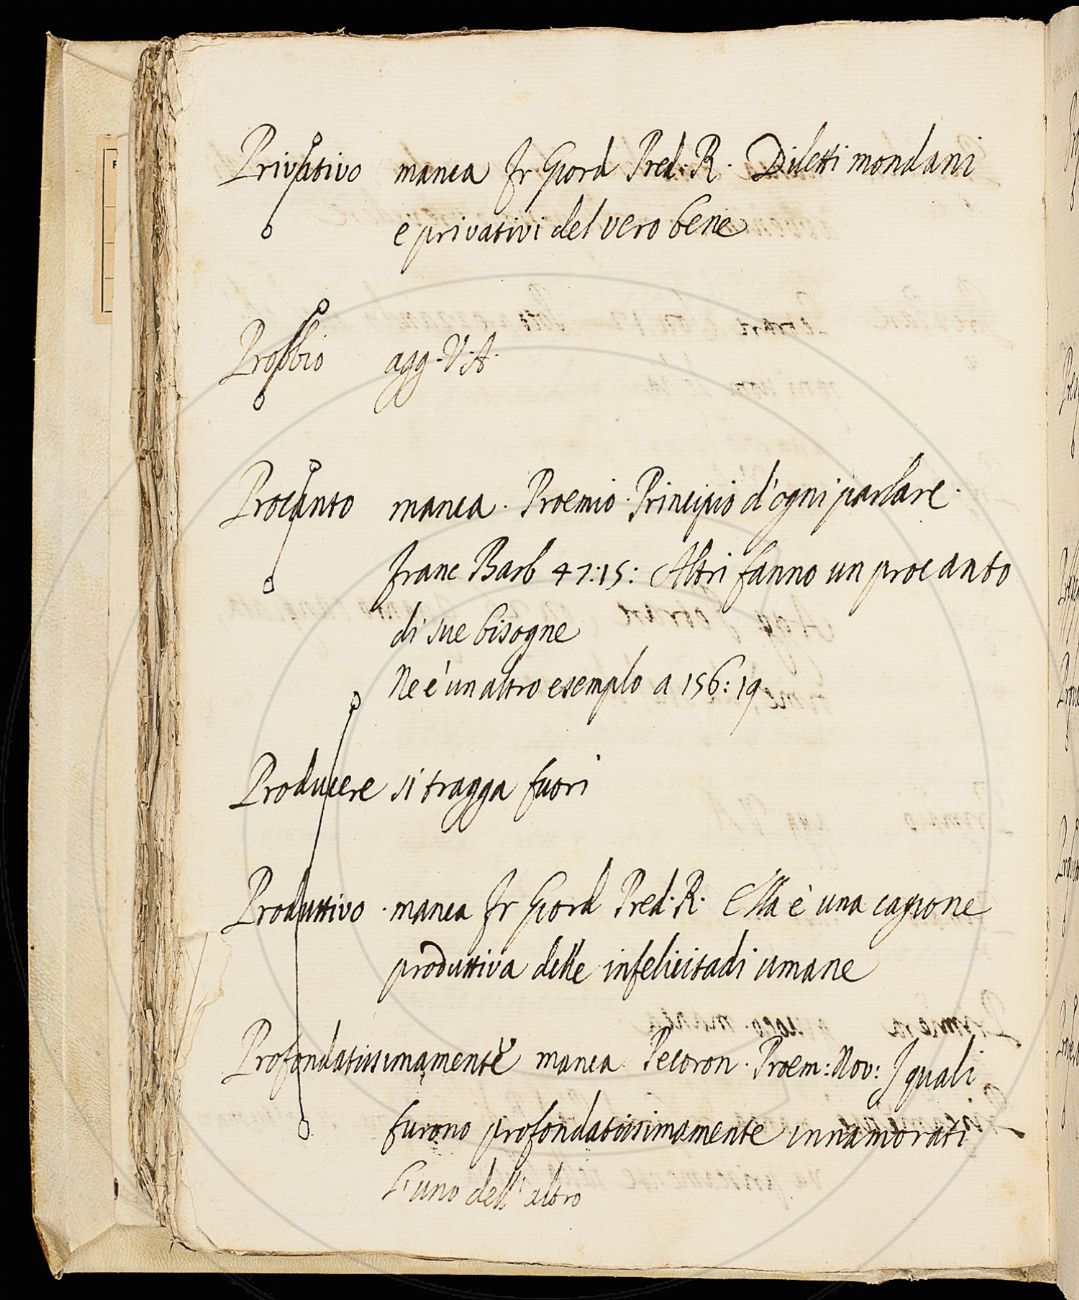 Privativo manca fr Giord Pred. R. Diletti mondani
e privativi del vero bene
Probbio agg. V. A.
Procanto manca. Proemio. Principio d'ogni parlare.
franc Barb 47:15: Altri fanno un procanto
di sue bisogne
Ne è un altro esemplo a 156:19
Producere si tragga fuori
Produttivo. manca fr Giord Pred. R. Ella è una cagione
produttiva delle infelicitadi umane
Profondatissimamente manca Pecoron. Proem: Nov: I quali
furono profondatissimamente innamorati
l'uno dell'altro